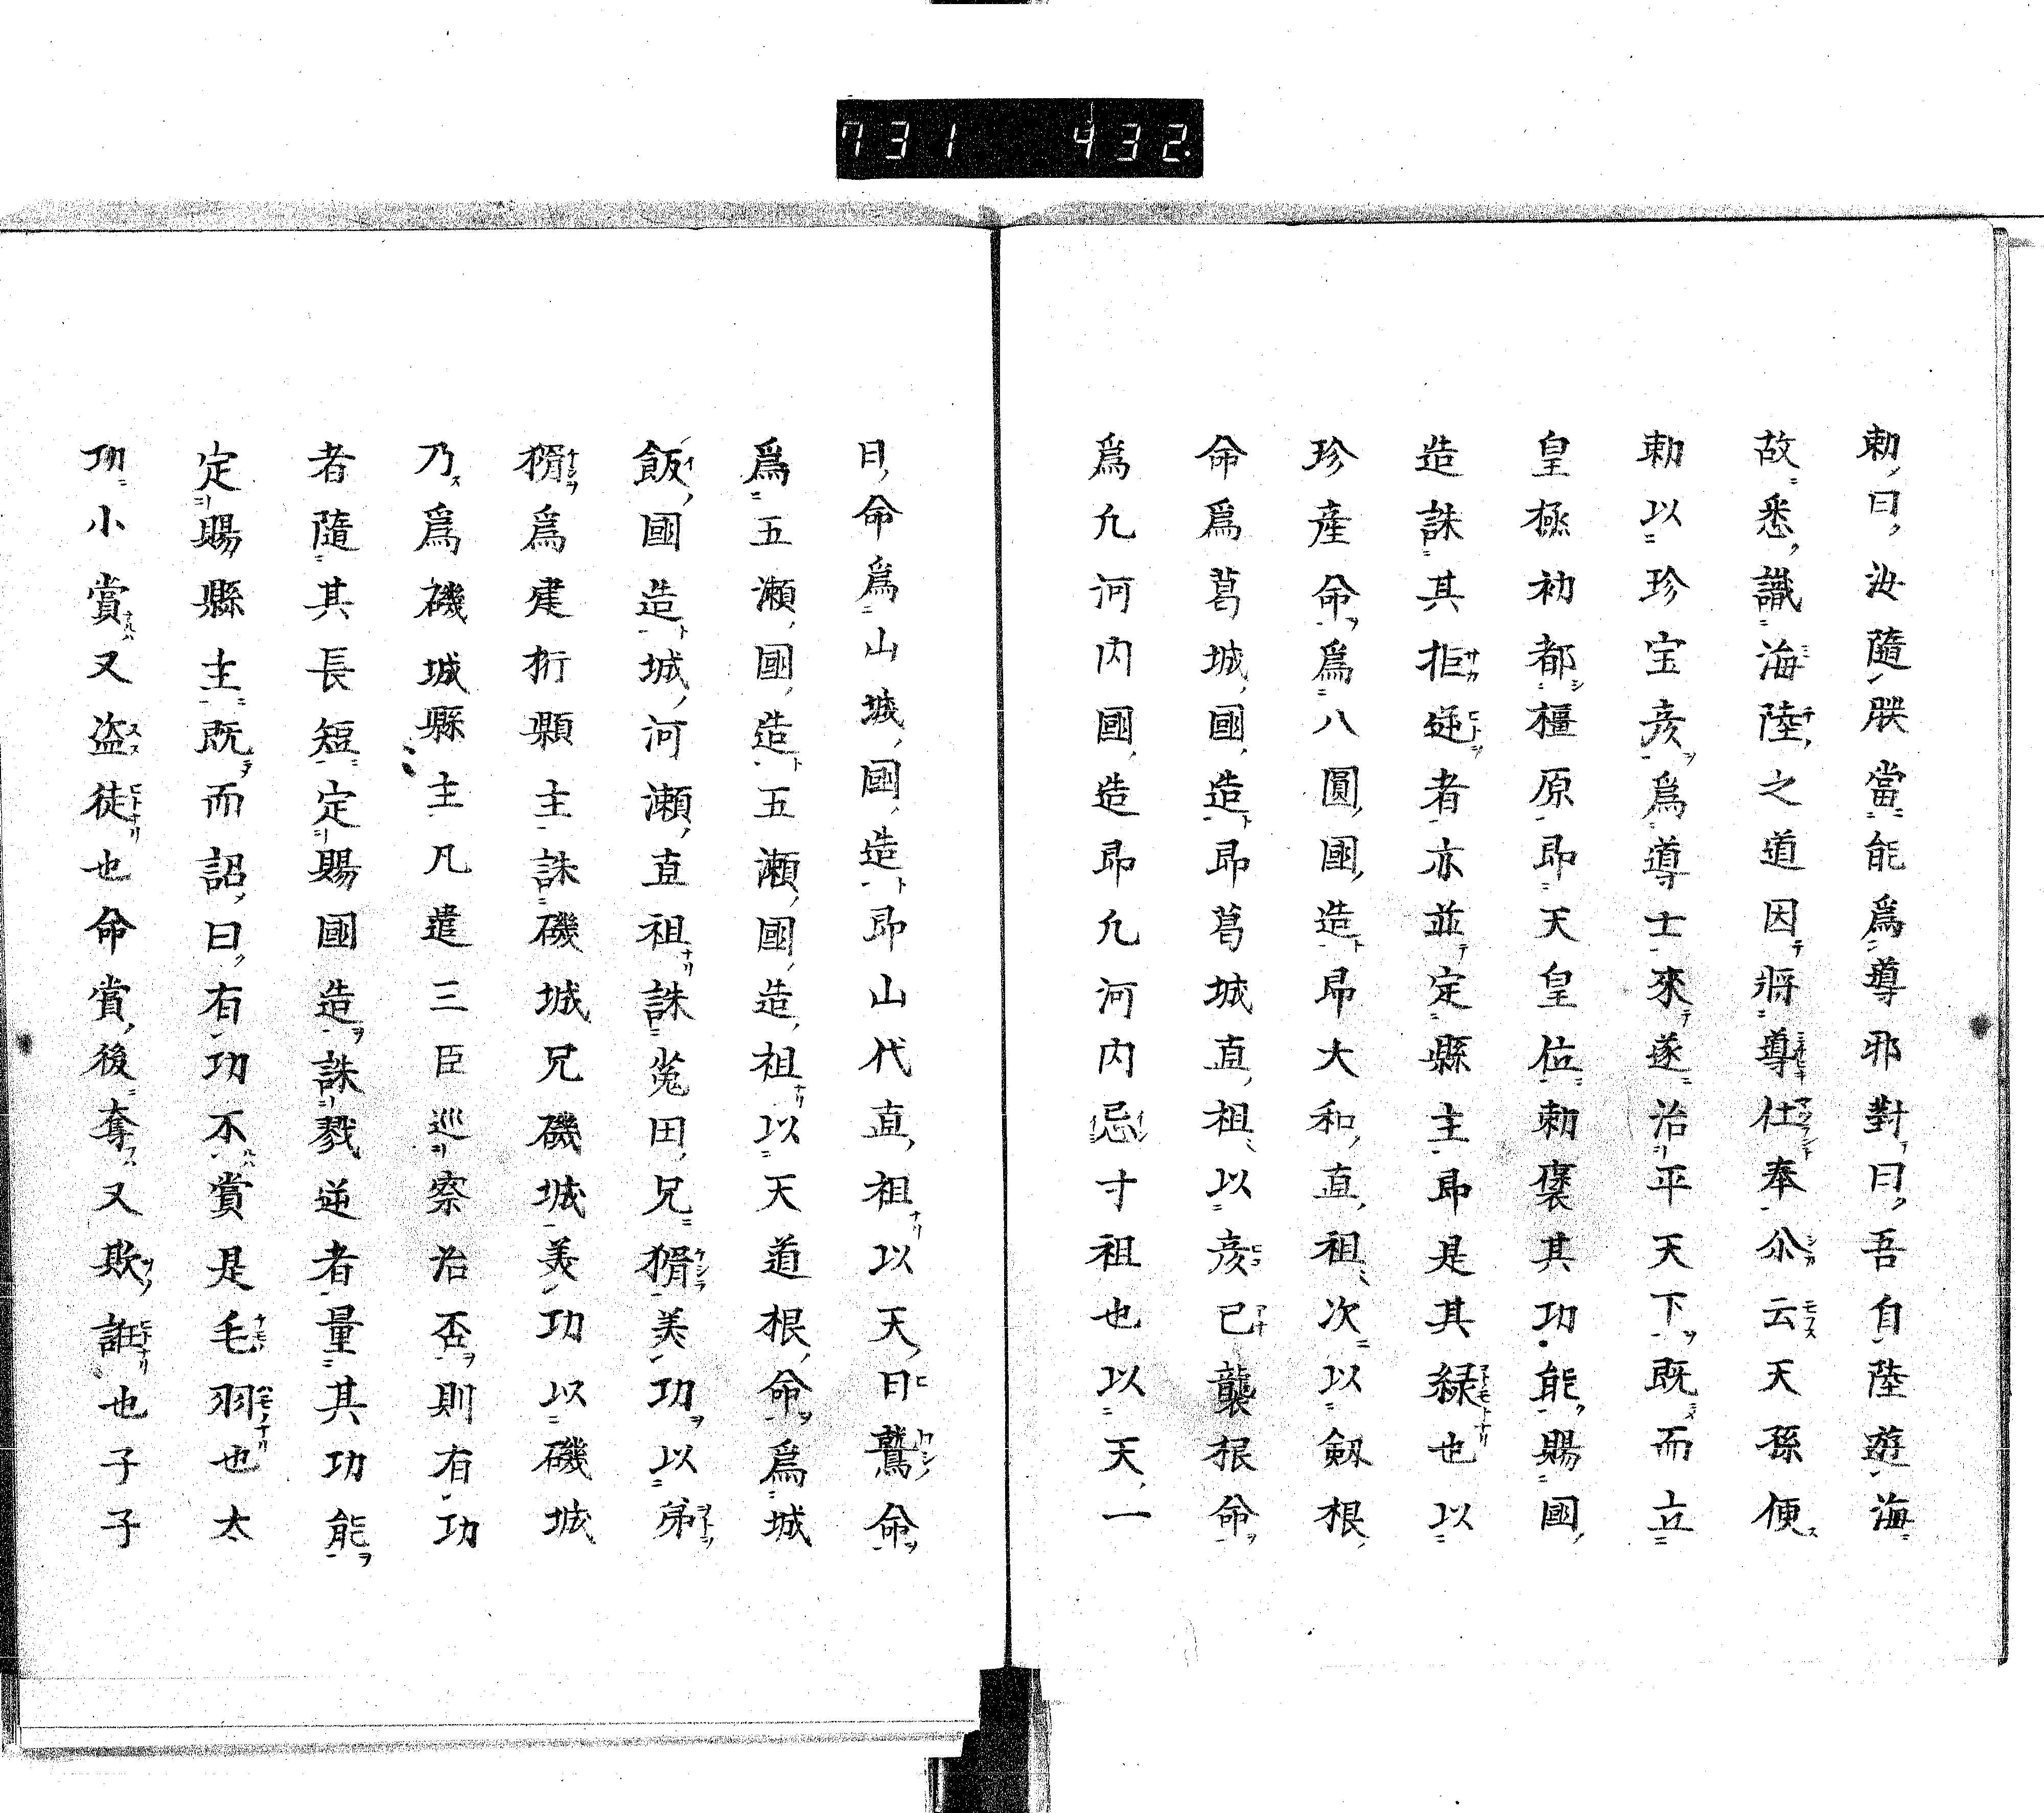 731 432.
勅曰汝隨朕當能爲導邪對曰吾自陸遊海
故悉識海陸之道因將導仕奉尒云天孫便
勅以珍宝彦爲導士來遂治平天下既而立
皇極初都橿原即天皇位勅褒其功能賜國
造誅其拒逆者亦並定縣主即是其縁也以
珍産命爲八圓國造即大和直祖次以剱根
命爲葛城國造即葛城直祖以彦己襲根命
爲凢河内國造即凢河内忌寸祖也以天一
日命爲山城國造即山代直祖以天日鷲命
爲五瀬國造五瀬國造祖以天道根命爲城
飯國造城河瀬直祖誅菟田兄猾美功以弟
猾爲建桁縣主誅磯城兄磯城美功以磯城
乃爲磯城縣主凡遣三臣巡察治否則有功
者隨其長短定賜國造誅戮逆者量其功能
定賜縣主既而詔曰有功不賞是毛羽也太
功小賞又盗徒也命賞後奪又欺誑也子子